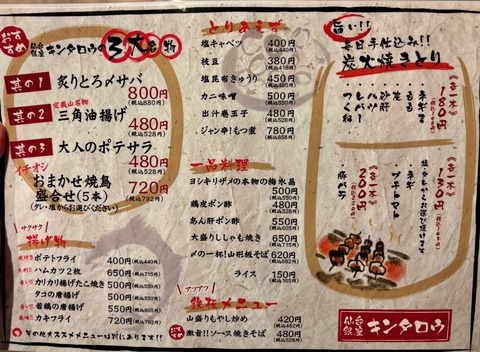 おすすめ
仙台銀座 キンタロウの3大名物
其の1 炙りとろ〆サバ
800円
(税込880円)
其の2 定義山名物
三角油揚げ
480円
(税込528円)
其の3 大人のポテサラ
480円
(税込528円)
イチオシ
おまかせ焼鳥
盛合せ(5本)
(タレ・塩からお選びください)
720円
(税込792円)
サクサク
揚げ物
皮付き ポテトフライ 400円(税込440円)
大判 ハムカツ2枚 650円(税込715円)
カリカリ揚げたこ焼き 500円(税込550円)
タコの唐揚げ 500円(税込550円)
若鶏の唐揚げ 500円(税込550円)
カキフライ 720円(税込792円)
その他オススメメニューは別にあります!!
とりあえず
塩キャベツ 400円(税込440円)
枝豆 380円(税込418円)
塩昆布きゅうり 450円(税込495円)
カニ味噌 500円(税込550円)
出汁巻玉子 480円(税込528円)
ジャン辛!もつ煮 780円(税込858円)
一品料理
ヨシキリザメの本物の梅水晶
500円(税込550円)
鶏皮ポン酢 480円(税込528円)
あん肝ポン酢 500円(税込550円)
大盛りししゃも焼き 650円(税込715円)
〆の一杯!山形板そば 620円(税込682円)
ライス 150円(税込165円)
アツアツ
鉄板メニュー
山盛りもやし炒め 420円(税込462円)
おすすめ 激旨!!ソース焼きそば 480円(税込528円)
旨い!!
毎日手仕込み!!
炭火焼きとり
《各一本》
180円
(税込198円)
・ネギま
・もも
・皮
・砂肝
・ハツ
・レバー
・つくね
塩・タレからお選び頂けます
《各一本》
200円
(税込220円)
・ネギ
・プチトマト
・豚バラ
仙台銀座 キンタロウ